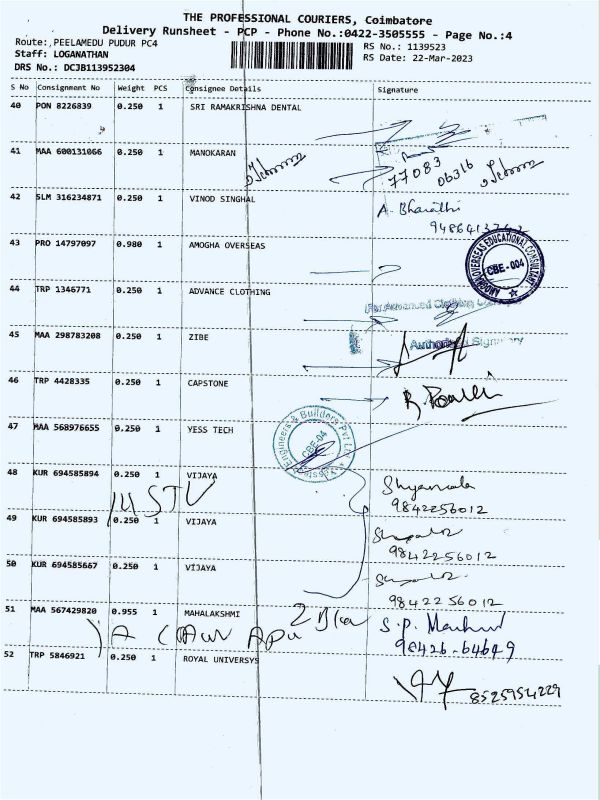 THE PROFESSIONAL COURIERS, Coimbatore
Delivery Runsheet - PCP - Phone No.:0422-3505555 - Page No.:4
Route:,PEELAMEDU PUDUR PC4
RS No.: 1139523
Staff: LOGANATHAN
RS Date: 22-Mar-2023
DRS No.: DCJB113952304
S No Consignment No Weight PCS Consignee Details Signature
40 PON 8226839 0.250 1 SRI RAMAKRISHNA DENTAL
41 MAA 600131066 0.250 1 MANOKARAN
77083
06316
42 SLM 316234871 0.250 1 VINOD SINGHAL
A. Bharathi
43 PRO 14797097 0.980 1 AMOGHA OVERSEAS
AMOGHA OVERSEAS EDUCATIONAL CONSULTANT
CBE-004
44 TRP 1346771 0.250 1 ADVANCE CLOTHING
For Advanced Clothing
45 MAA 298783208 0.250 1 ZIBE
Authorised Signatory
46 TRP 4428335 0.250 1 CAPSTONE
47 MAA 568976655 0.250 1 YESS TECH
Engineers & Builders Pvt Ltd
CBE-04
48 KUR 694585894 0.250 1 VIJAYA
Shyamala
9842256012
49 KUR 694585893 0.250 1 VIJAYA
9842256012
50 KUR 694585667 0.250 1 VIJAYA
9842256012
51 MAA 567429820 0.955 1 MAHALAKSHMI
S.P.
98426-64649
52 TRP 5846921 0.250 1 ROYAL UNIVERSYS
8525954229